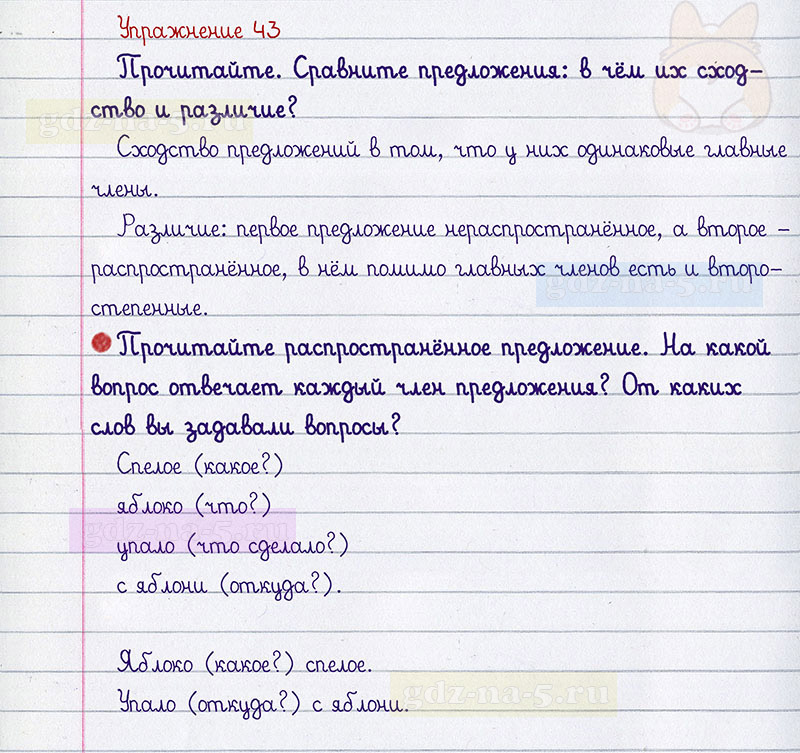 Упражнение 43
Прочитайте. Сравните предложения: в чём их сход-
ство и различие?
gdz-na-5.ru
Сходство предложений в том, что у них одинаковые главные
члены.
Различие: первое предложение нераспространённое, а второе –
распространённое, в нём помимо главных членов есть и второ-
gdz-na-5.ru
степенные.
Прочитайте распространённое предложение. На какой
вопрос отвечает каждый член предложения? От каких
слов вы задавали вопросы?
Спелое (какое?)
яблоко (что?)
gdz-na-5.ru
упало (что сделало?)
с яблони (откуда?).
Яблоко (какое?) спелое.
gdz-na-5.ru
Упало (откуда?) с яблони.